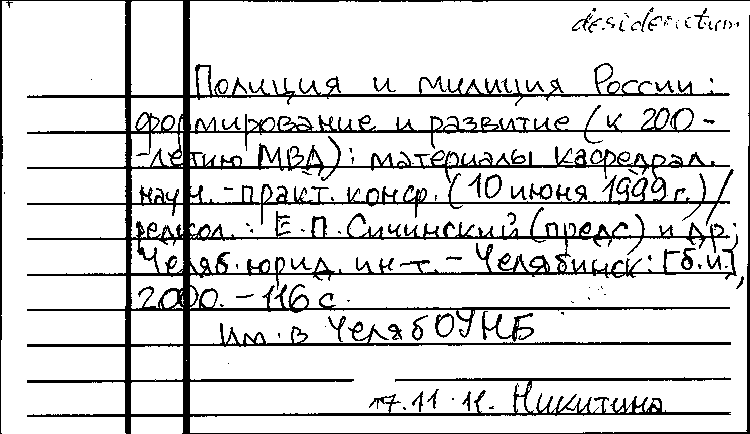 desideratum
Полиция и милиция России:
формирование и развитие (к 200-
-летию МВД): материалы кафедрал.
науч.-практ. конф. (10 июня 1999 г.)/
редкол.: Е.П. Сичинский (предс) и др;
Челяб. юрид. ин-т. - Челябинск: [б.и.],
2000. - 116 с.
Им. в ЧелябОУНБ
17.11.11. Никитина